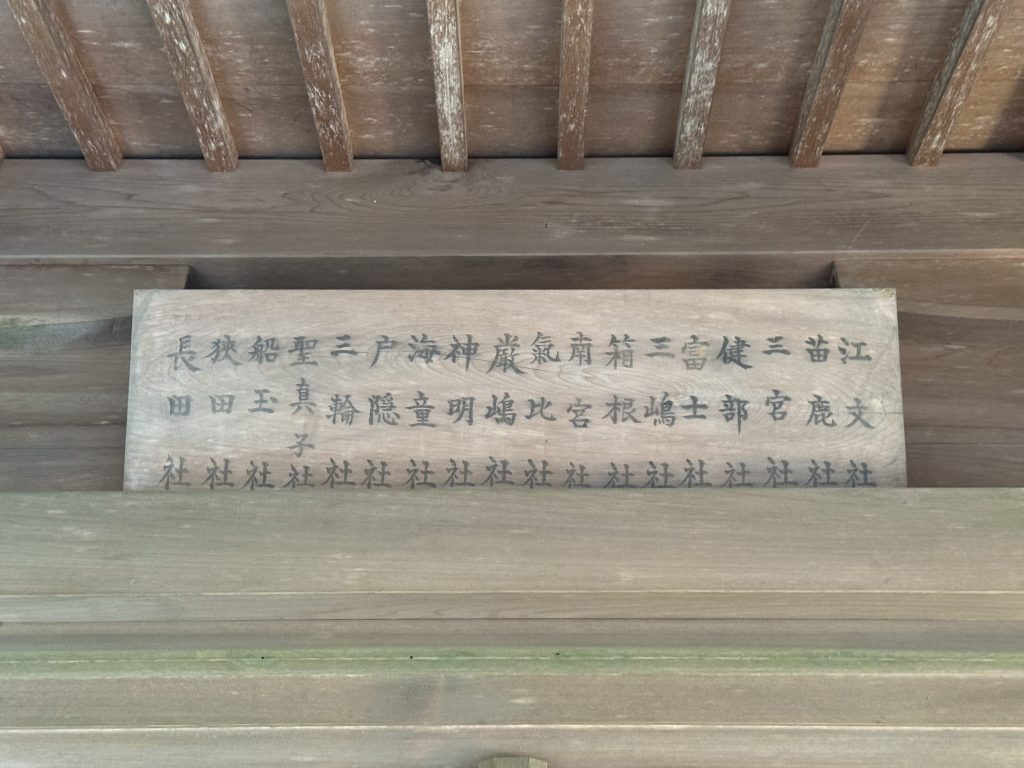 江文社
苗鹿社
三宮社
健部社
富士社
三嶋社
箱根社
南宮社
氣比社
嚴嶋社
神明社
海童社
戸隠社
三輪社
聖真子社
船玉社
狹田社
長田社